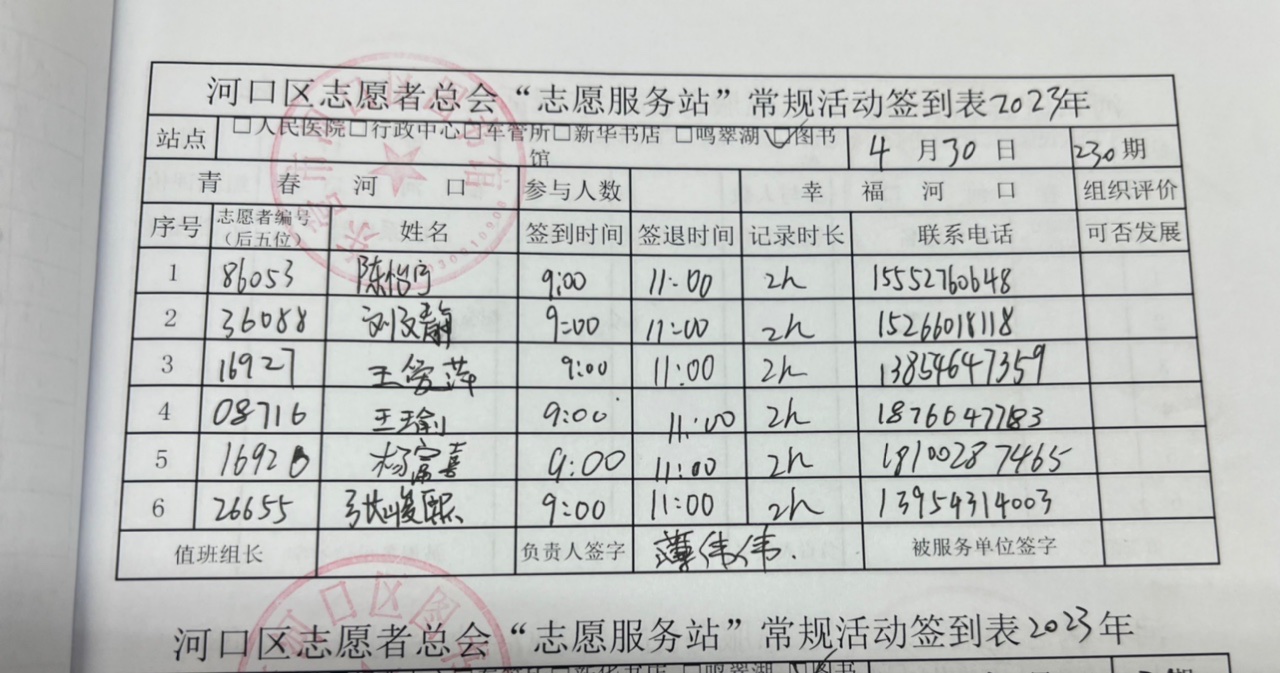 河口区志愿者总会“志愿服务站”常规活动签到表2023年
站点 □人民医院□行政中心□车管所□新华书店 □鸣翠湖☑图书馆 4 月 30 日 230期
青春河口 参与人数 幸福河口 组织评价
序号 志愿者编号（后五位） 姓名 签到时间 签退时间 记录时长 联系电话 可否发展
1 86053 陈怡宁 9:00 11:00 2h 15552760648
2 36088 刘文静 9:00 11:00 2h 15266018118
3 16927 王爱萍 9:00 11:00 2h 13854647359
4 08716 王瑜 9:00 11:00 2h 18766477183
5 16928 杨富喜 9:00 11:00 2h 18100287465
6 26655 张峻熙 9:00 11:00 2h 13954314003
值班组长 负责人签字 薄伟伟 被服务单位签字
河口区志愿者总会“志愿服务站”常规活动签到表2023年
□新华书店 □鸣翠湖☑图书
河口区图